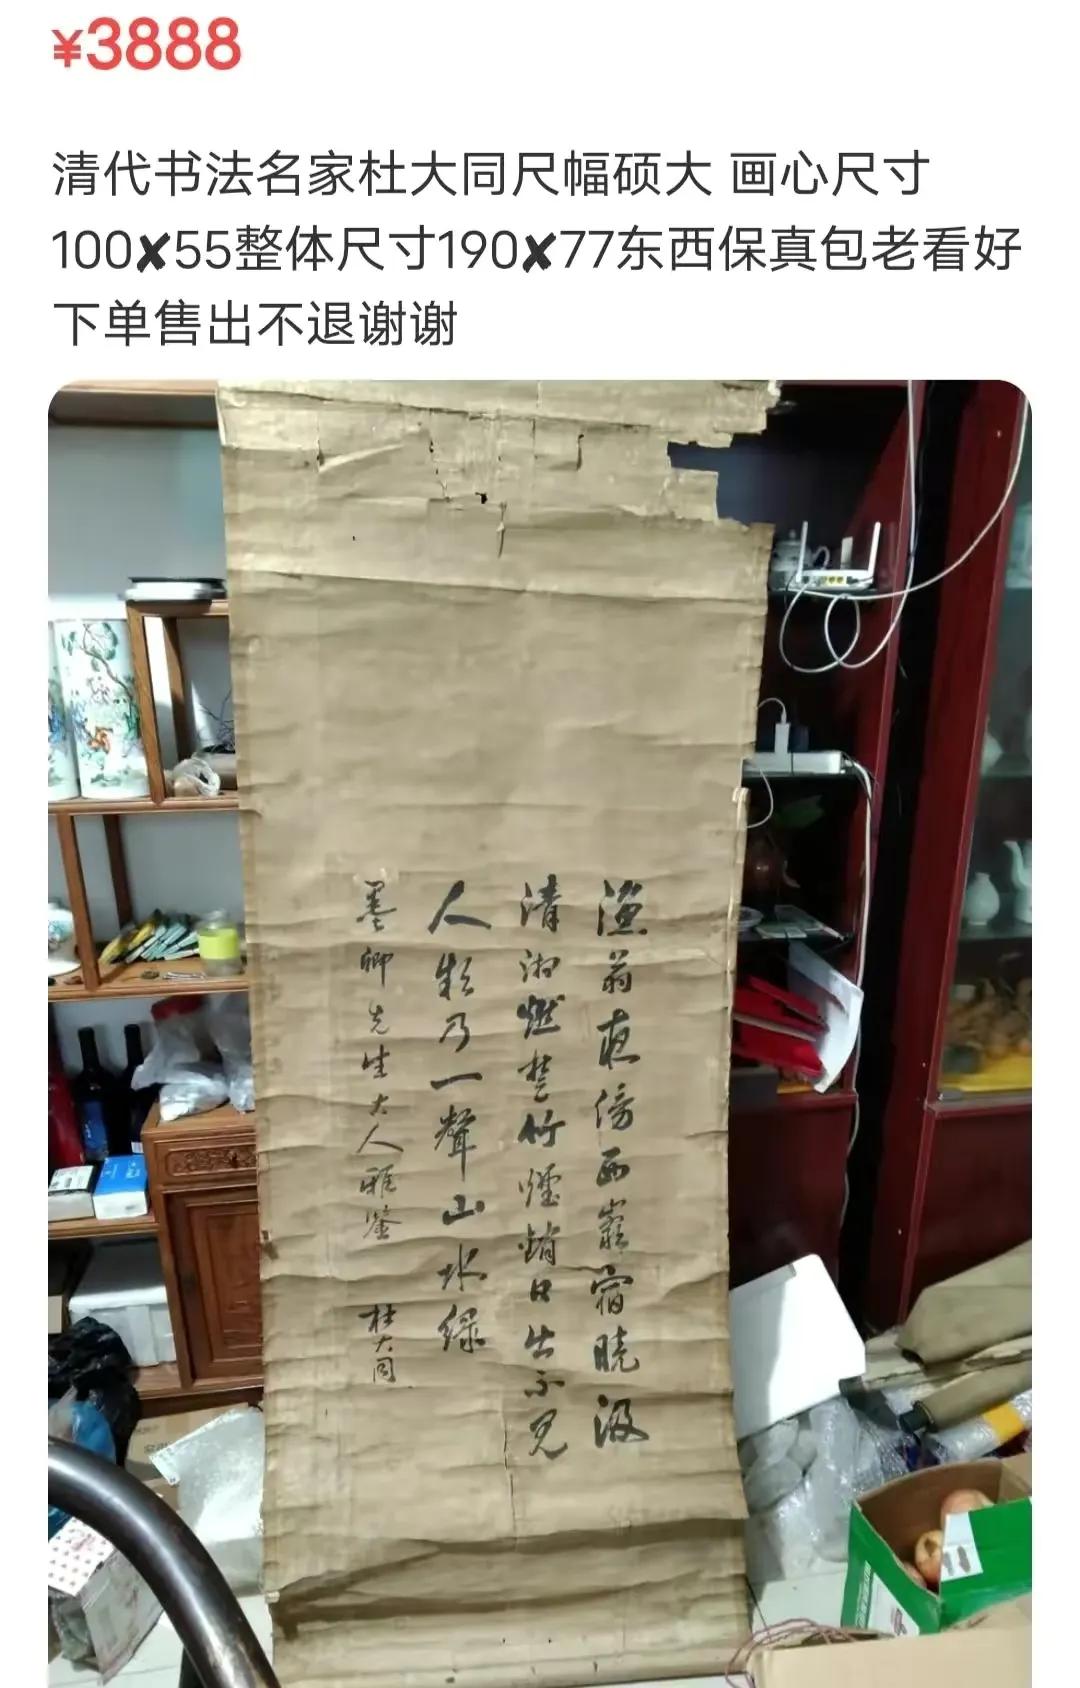 ¥3888
清代书法名家杜大同尺幅硕大 画心尺寸
100✘55整体尺寸190✘77东西保真包老看好
下单售出不退谢谢
漁翁夜傍西巖宿曉汲
清湘燃楚竹煙銷日出不見
人欸乃一聲山水綠
墨卿先生大人雅鑒
杜大同